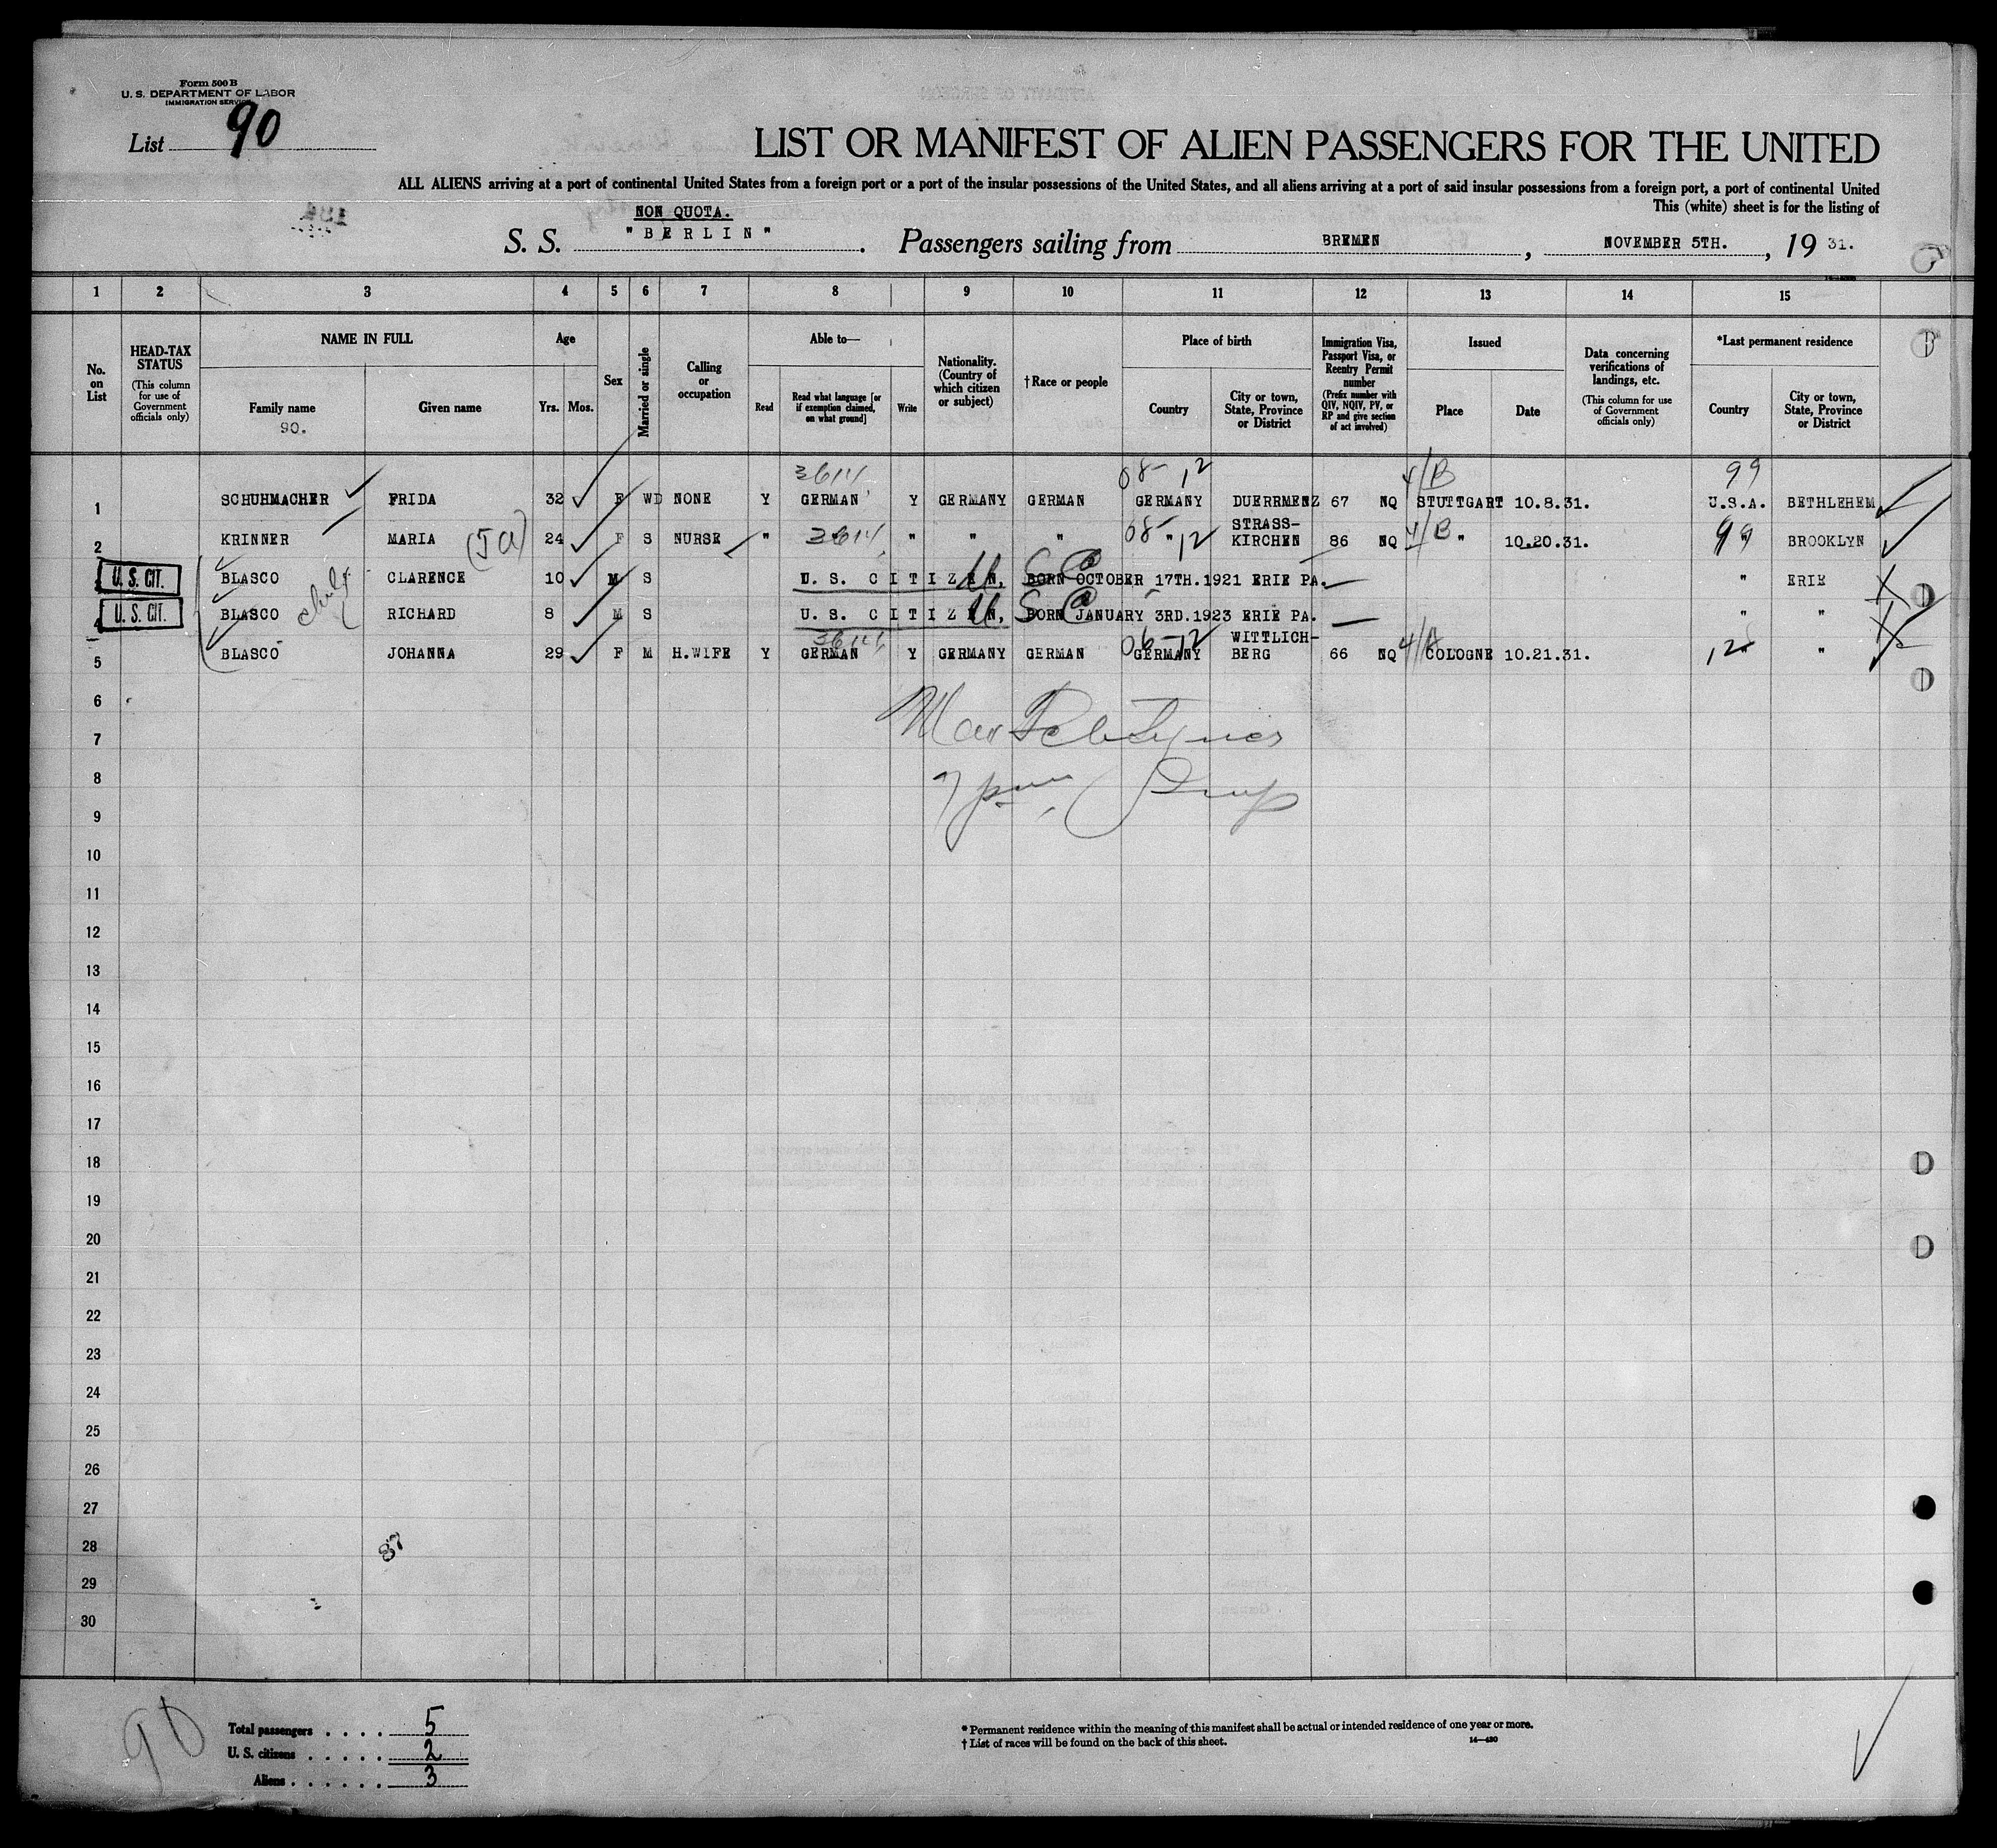 Form 500 B
U. S. DEPARTMENT OF LABOR
IMMIGRATION SERVICE
List 90
LIST OR MANIFEST OF ALIEN PASSENGERS FOR THE UNITED
ALL ALIENS arriving at a port of continental United States from a foreign port or a port of the insular possessions of the United States, and all aliens arriving at a port of said insular possessions from a foreign port, a port of continental United
This (white) sheet is for the listing of
NON QUOTA.
S. S. "BERLIN". Passengers sailing from BREMEN, NOVEMBER 5TH., 19 31.
1 2 3 4 5 6 7 8 9 10 11 12 13 14 15
No. on List
HEAD-TAX STATUS (This column for use of Government officials only)
NAME IN FULL
Family name
90.
Given name
Age
Yrs. Mos.
Sex
Married or single
Calling or occupation
Able to—
Read
Read what language [or if exemption claimed, on what ground]
Write
Nationality. (Country of which citizen or subject)
†Race or people
Place of birth
Country
City or town, State, Province or District
Immigration Visa, Passport Visa, or Reentry Permit number (Prefix number with QIV, NQIV, PV, or RP and give section of act involved)
Issued
Place
Date
Data concerning verifications of landings, etc. (This column for use of Government officials only)
*Last permanent residence
Country
City or town, State, Province or District
08- 12 4/B 99
1 SCHUHMACHER FRIDA 32 F WD NONE Y GERMAN Y GERMANY GERMAN GERMANY DUERRMENZ 67 NQ STUTTGART 10.8.31. U.S.A. BETHLEHEM
2 KRINNER MARIA 24 F S NURSE " " " " " STRASS-KIRCHEN 86 NQ 4/B " 10.20.31. 99 " BROOKLYN
U. S. CIT. BLASCO CLARENCE 10 M S U. S. CITIZEN, BORN OCTOBER 17TH.1921 ERIE PA. " ERIE
U. S. CIT. 4 BLASCO RICHARD 8 M S U. S. CITIZEN, BORN JANUARY 3RD.1923 ERIE PA. " "
5 BLASCO JOHANNA 29 F M H.WIFE Y GERMAN Y GERMANY GERMAN GERMANY WITTLICH-BERG 66 NQ 4/A COLOGNE 10.21.31. " "
6
7
8
9
10
11
12
13
14
15
16
17
18
19
20
21
22
23
24
25
26
27
28
87
29
30
90
Total passengers . . . . 5
U. S. citizens . . . . . 2
Aliens . . . . . . 3
* Permanent residence within the meaning of this manifest shall be actual or intended residence of one year or more.
† List of races will be found on the back of this sheet.
14—430